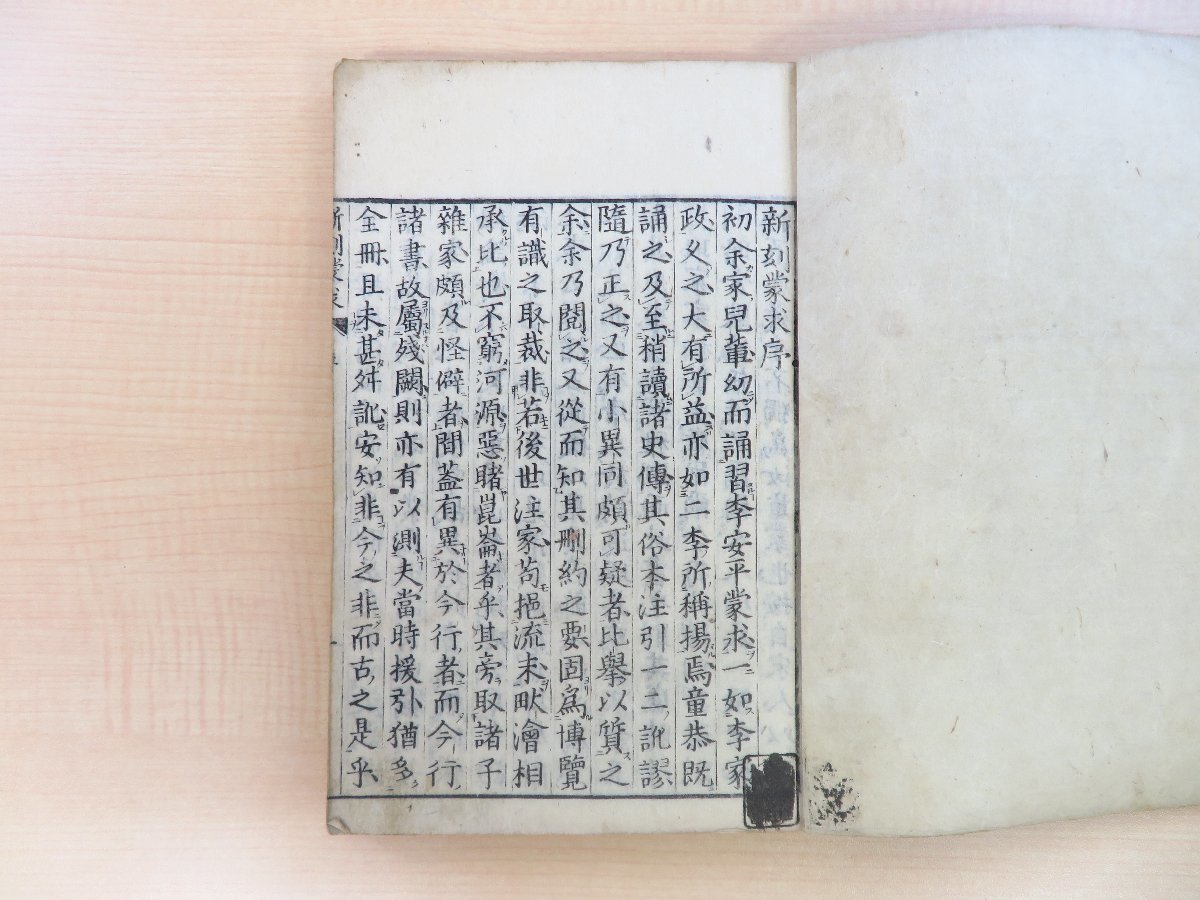 新刻蒙求序
初余家兒輩幼而誦習李安平蒙求一如李家
政父之大有所益亦如二李所稱揚焉童恭既
誦之及至稍讀諸史傳其俗本注引一二訛謬
隨乃正之又有小異同頗可疑者比舉以質之
余余乃閱之又從而知其刪約之要固為博覽
有識之取裁非若後世注家苟挹流末畎澮相
承比也不窮河源惡睹崑崙者乎其旁取諸子
雜家頗及怪僻者間蓋有異於今行者而今行
諸書故屬殘闕則亦有以測夫當時援引猶多
全冊且未甚舛訛安知非今之非而古之是乎
新刻蒙求